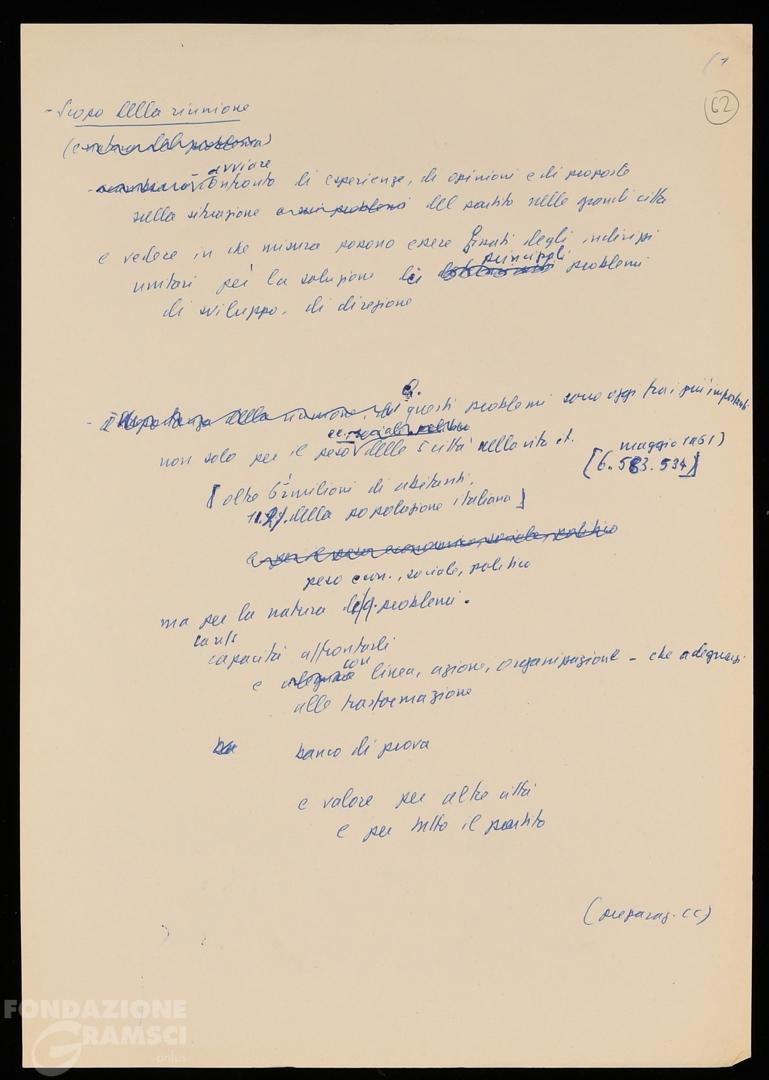 (1
62
- Scopo della riunione
(e natura del problema)
avviare
- confronto di esperienze, di opinioni e di proposte
sulla situazione e sui problemi del partito nelle grandi città
e vedere in che misura possono essere fissati degli indirizzi
principali
unitari per la soluzione dei problemi
di sviluppo, di direzione
- importanza della riunione, questi problemi sono oggi tra i più importanti
ec. sociale politico
non solo per il peso delle 5 città nella vita it.
maggio 1961)
[6.583.534]
[oltre 6 ½ milioni di abitanti,
della popolazione italiana]
e per il peso economico, sociale, politico
peso econ., sociale, politico
ma per la natura d/q. problemi.
capacità affrontarli
con
e linea, azione, organizzazione - che adeguarsi
alla trasformazione
banco di prova
e valore per altre città
e per tutto il partito
(preparaz. CC)
FONDAZIONE
GRAMSCI
onlus